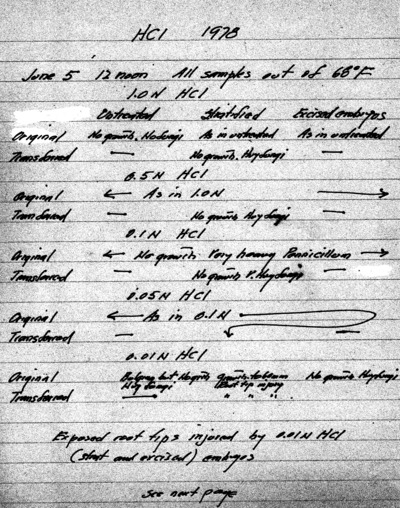 HCl 1978
June 5 12 noon All samples out of 68°F
1.0 N HCl
Untreated Stratified Excised embryos
Original No growth. No fungi As in untreated As in untreated
Transferred — No growth. Hvy fungi —
0.5 N HCl
Original ← As in 1.0 N →
Transferred — No growth Hvy fungi —
0.1 N HCl
Original ← No growth Very heavy Pennicillum →
Transferred — No growth V. Hvy fungi —
0.05 N HCl
Original ← As in 0.1 N
Transferred — —
0.01 N HCl
Original but No growth growth No growth Hvy fungi
Hvy fungi Root tip injury
Transferred — " " "
Exposed root tips injured by 0.01 N HCl
(strat and excised) embryos
See next page